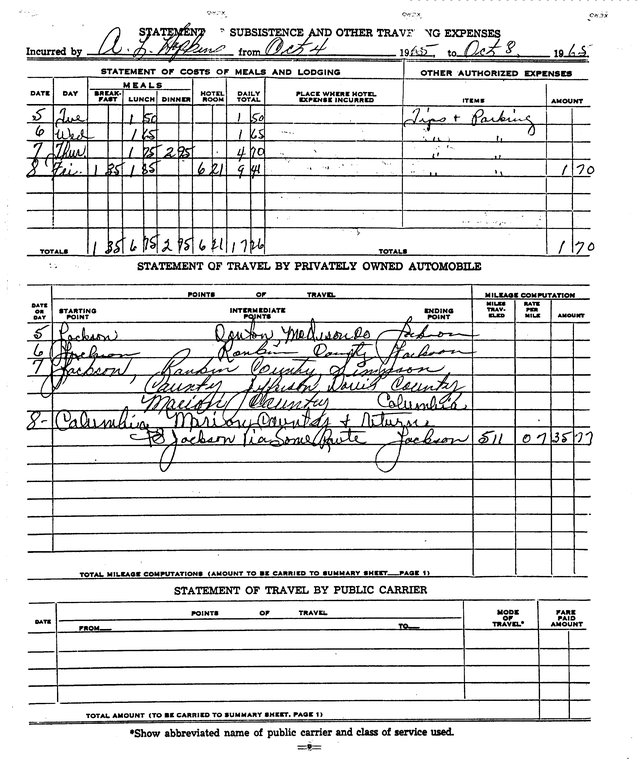 STATEMENT SUBSISTENCE AND OTHER TRAVE NG EXPENSES
Incurred by A. L. Hopkins from Oct 4 1965, to Oct 8, 1965
STATEMENT OF COSTS OF MEALS AND LODGING OTHER AUTHORIZED EXPENSES
DATE DAY MEALS BREAK-FAST LUNCH DINNER HOTEL ROOM DAILY TOTAL PLACE WHERE HOTEL EXPENSE INCURRED ITEMS AMOUNT
5 Tue 1 50 1 50 Tips & Parking
6 Wed 1 65 1 65 " "
7 Thur 1 75 2 95 4 70 " "
8 Fri. 1 35 1 85 6 21 9 41 " " 1 70
TOTALS 1 35 6 75 2 95 6 21 17 26 TOTALS 1 70
STATEMENT OF TRAVEL BY PRIVATELY OWNED AUTOMOBILE
POINTS OF TRAVEL MILEAGE COMPUTATION
DATE OR DAY STARTING POINT INTERMEDIATE POINTS ENDING POINT MILES TRAV-ELED RATE PER MILE AMOUNT
5 Jackson Canton Madison Co Jackson
6 Jackson Rankin County Jackson
7 Jackson, Rankin County Simpson
County Jefferson Davis County
Marion County Columbia
8- Columbia Marion County & Return
To Jackson Via Same Route Jackson 511 07 35 77
TOTAL MILEAGE COMPUTATIONS (AMOUNT TO BE CARRIED TO SUMMARY SHEET PAGE 1)
STATEMENT OF TRAVEL BY PUBLIC CARRIER
DATE POINTS OF TRAVEL MODE OF TRAVEL* FARE PAID AMOUNT
FROM TO
TOTAL AMOUNT (TO BE CARRIED TO SUMMARY SHEET, PAGE 1)
*Show abbreviated name of public carrier and class of service used.